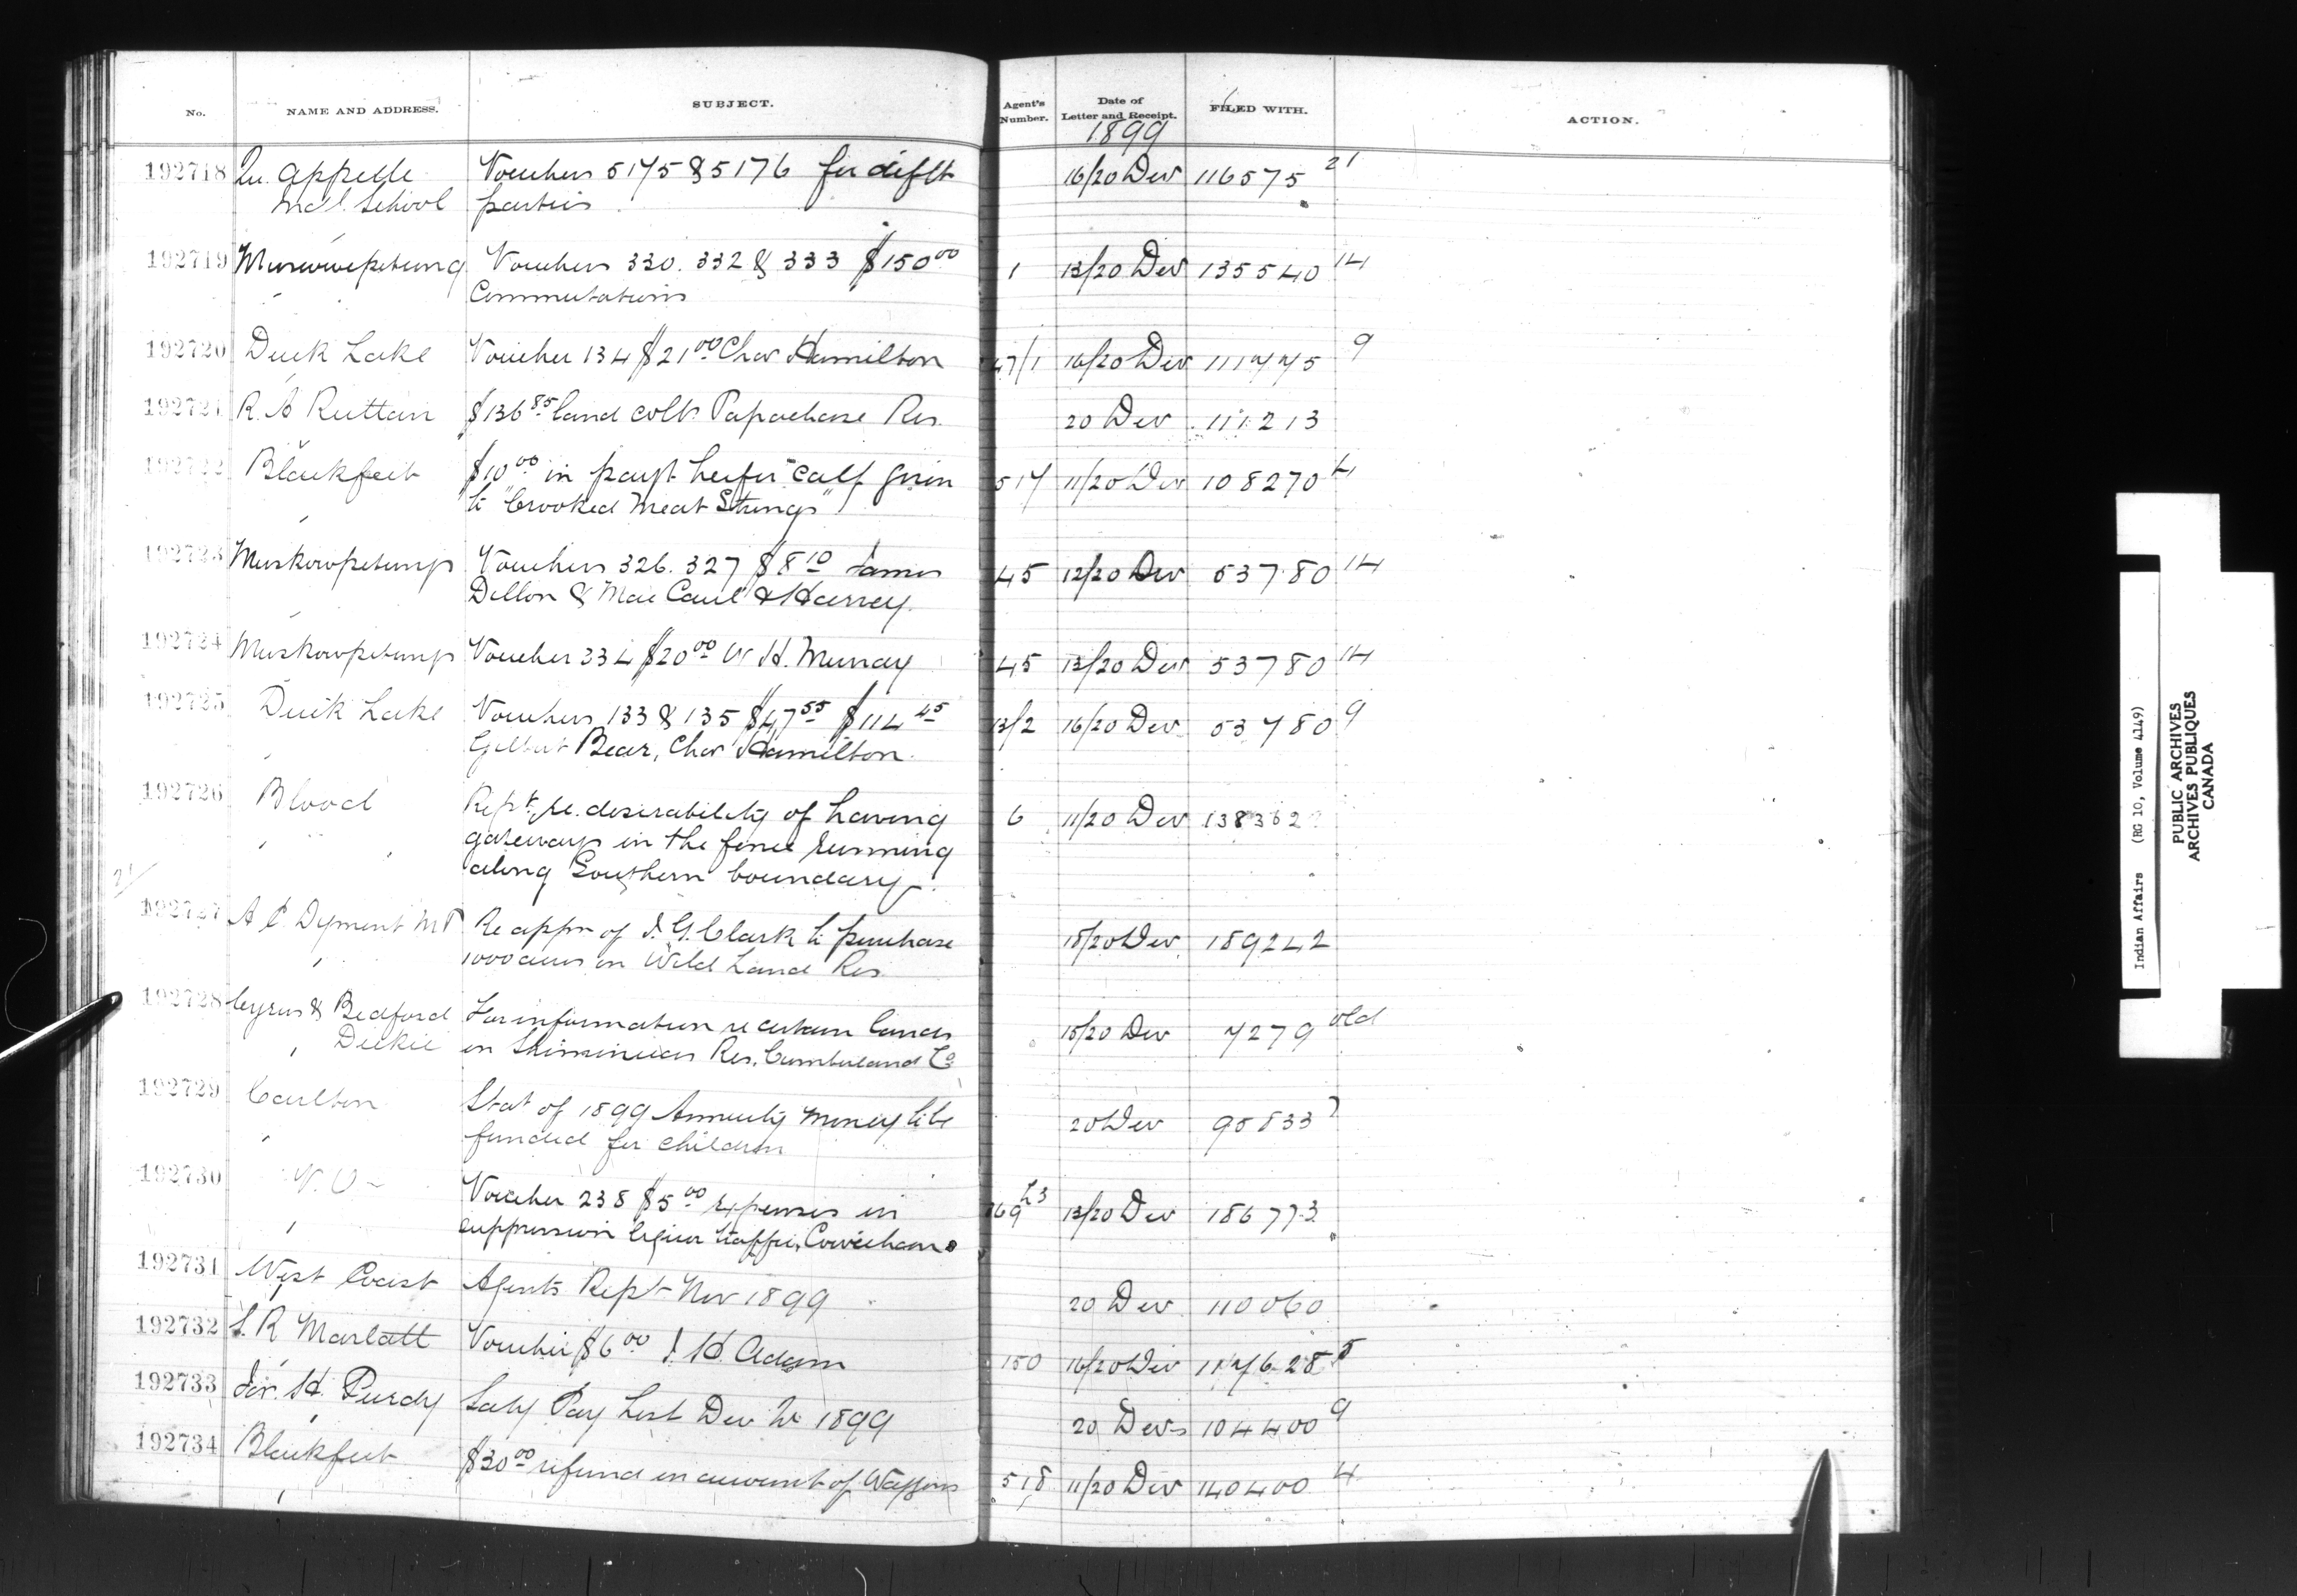 No. NAME AND ADDRESS. SUBJECT. Agent's Number. Date of Letter and Receipt. FILED WITH. ACTION.
1899
192718 Qu'Appelle Vouchers 5175 & 5176 for difft 16/20 Dec 116575 21
Indl. School parties
192719 Muscowpetung Vouchers 330. 332 & 333 $150.00 1 13/20 Dec 135540 14
Commutations
192720 Duck Lake Voucher 134 $21.00 Chas Hamilton 47/1 16/20 Dec 111775 9
192721 R. A Ruttan $136.85 land colln Papachase Res. 20 Dec 111213
192722 Blackfeet $10.00 in payt heifer calf given 517 11/20 Dec 108270 4
to "Crooked Meat Strings"
192723 Muskowpetungs Vouchers 326. 327 $8.10 James 45 12/20 Dec 53780 14
Dillon & MacCaul & Harvey.
192724 Muskowpetungs Voucher 334 $20.00 W H. Murray 45 13/20 Dec 53780 14
192725 Duck Lake Vouchers 133 & 135 $47.55 $114.45 13/2 16/20 Dec 53780 9
Gilbert Bear, Chas Hamilton.
192726 Blood Rept. re. desirability of having 6 11/20 Dec 138362
gateways in the fence running
along Southern boundary.
192727 A C Dyment MP Re appn of J. G. Clark to purchase 18/20 Dec 189242
1000 acres on Wild Land Res.
192728 Cyrus & Bedford For information re certain lands 15/20 Dec 7279 old
Dickie on Res. Cumberland Co
192729 Carlton Stat of 1899 Annuity money to be 20 Dec 90833
funded for children
192730 Voucher 238 $5.00 expenses in 13/20 Dec 186773
suppression liquor traffic, Cowichan
192731 West Coast Agents Rept Nov 1899 20 Dec 110060
192732 S. R Marlatt Voucher $6.00 J. H. Adam 150 16/20 Dec 117628 5
192733 Jas. H. Purdy Saly Pay List Dec Qr 1899 20 Dec 104400 9
192734 Blackfeet $30.00 refund on account of Waggons 518 11/20 Dec 140400 4
Indian Affairs (RG 10, Volume 4149)
PUBLIC ARCHIVES
ARCHIVES PUBLIQUES
CANADA